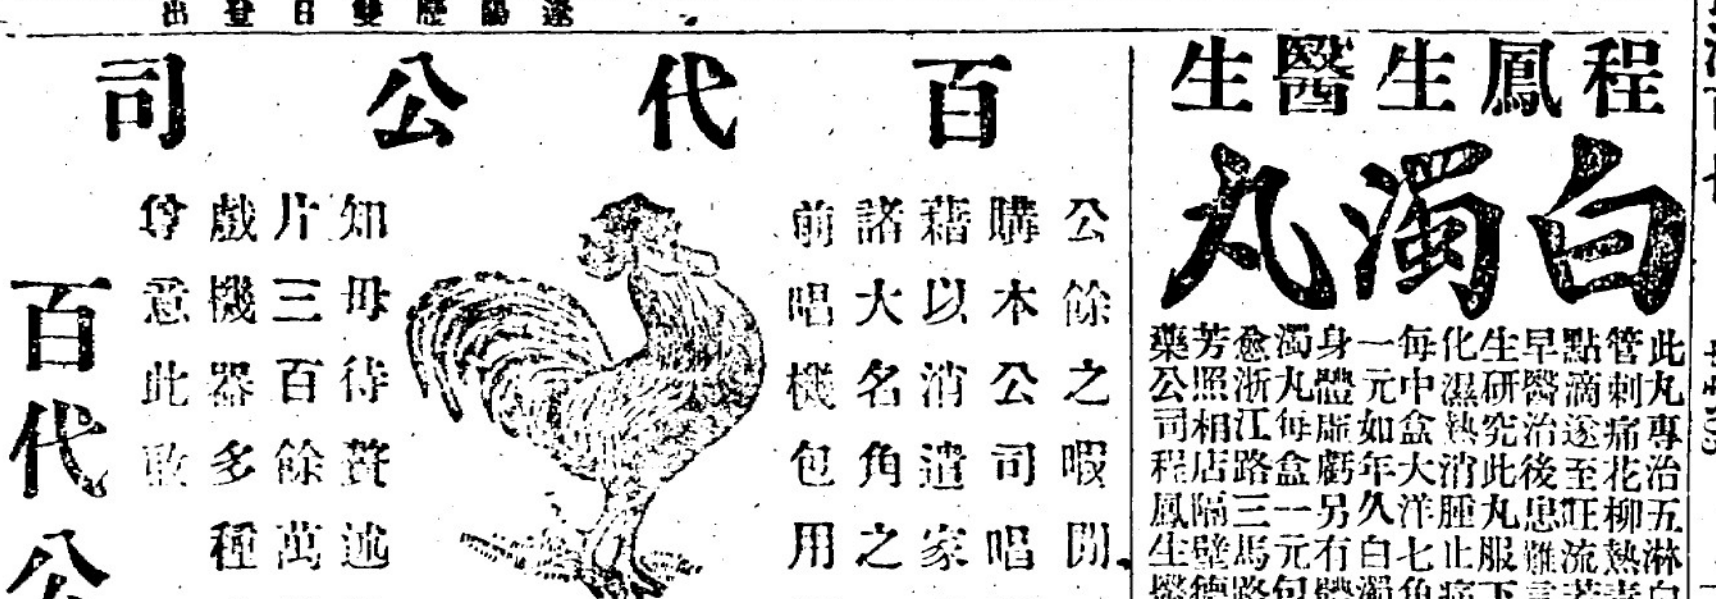 逐陽歷雙日登出
程鳳生醫生
白濁丸
此丸專治五淋白
管刺痛花柳熱毒
點滴遂至旺流若
早醫治後患難言
生研究此丸服下
化濕熱消腫止痛
每中盒大洋七角
一元如年久白濁
身體虛虧另有體
濁丸每盒一元包
愈浙江路三馬路
芳照相店隔壁德
藥公司程鳳生醫
百代公司
公餘之暇閒
購本公司唱
藉以消遣家
諸大名角之
前唱機包用
知毋待贅述
片三百餘萬
戲機器多種
尊意此敢
百代公